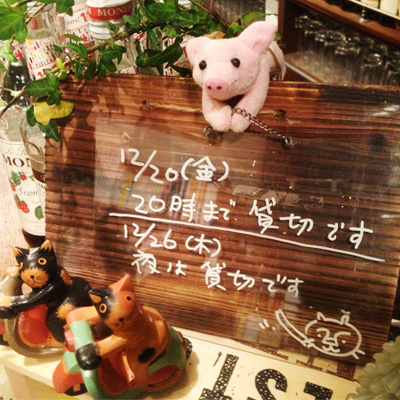 12/20(金)
20時まで 貸切です
12/26(木)
夜は 貸切です
MONIN
MONIN
EST